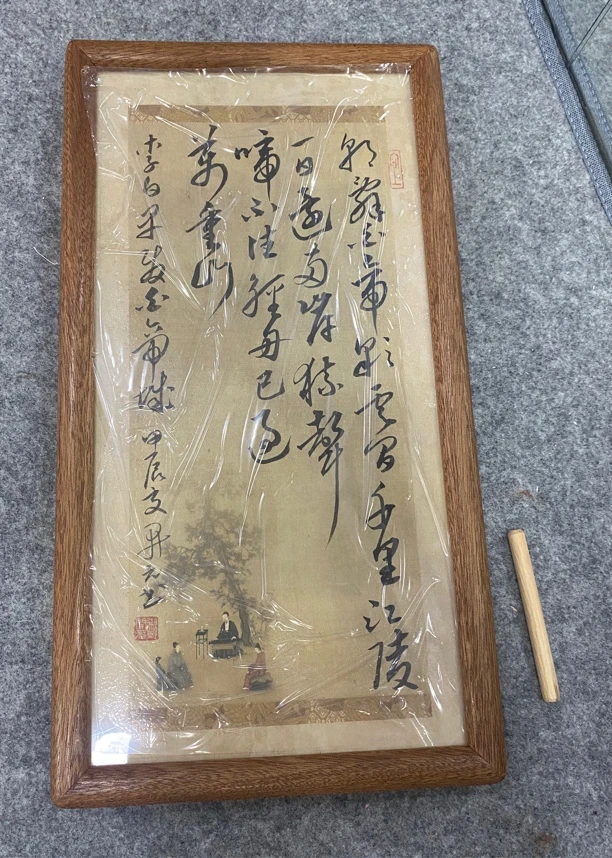 朝辞白帝彩云间千里江陵
一日還两岸猿聲
啼不住輕舟已過
萬重山
李白早發白帝城 甲辰夏 昇元书